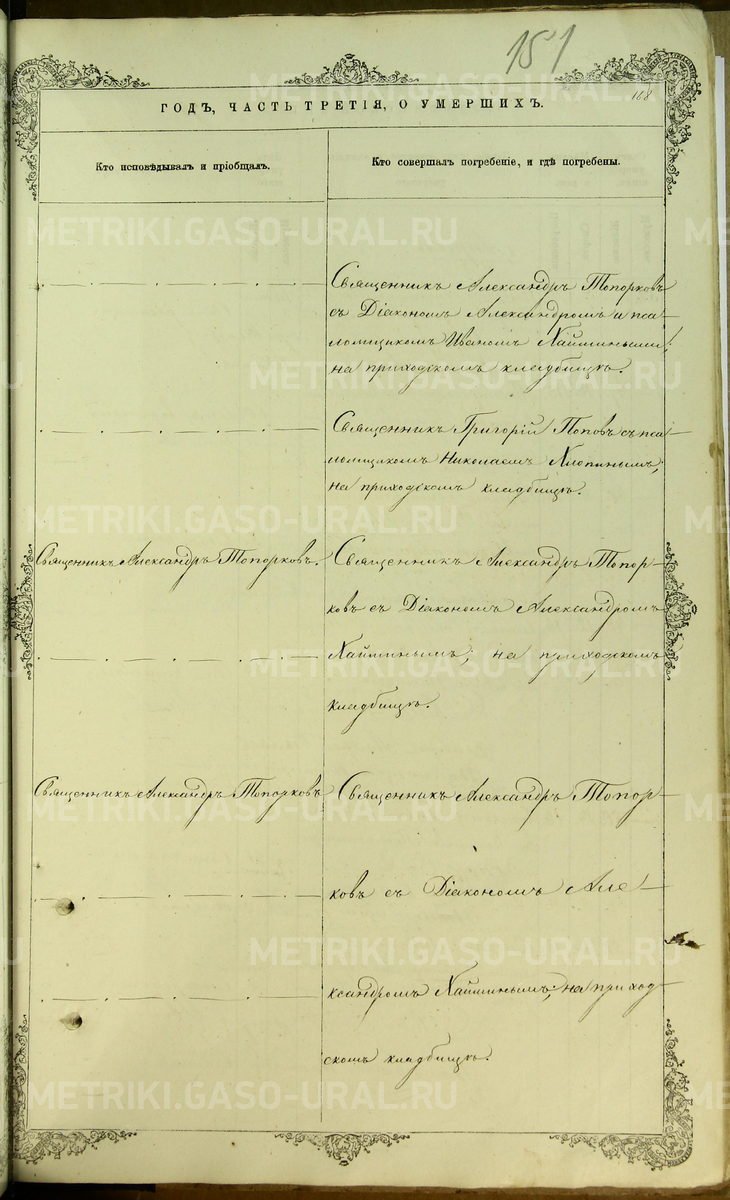 151
168
ГОДЪ, ЧАСТЬ ТРЕТІЯ, О УМЕРШИХЪ.
Кто исповѣдывалъ и пріобщалъ.
Кто совершалъ погребеніе, и гдѣ погребены.
Священникъ Александръ Топорковъ
съ Діакономъ Александромъ и пса-
ломщикомъ Иваномъ
на приходскомъ кладбищѣ.
Священникъ Григорій Поповъ съ пса-
ломщикомъ Николаемъ Хлопинымъ;
на приходскомъ кладбищѣ.
Священникъ Александръ Топорковъ.
Священникъ Александръ Топор-
ковъ съ Діакономъ Александромъ
на приходскомъ
кладбищѣ.
Священникъ Александръ Топорковъ
Священникъ Александръ Топор-
ковъ съ Діакономъ Але-
ксандромъ на приход
скомъ кладбищѣ.
METRIKI.GASO-URAL.RU